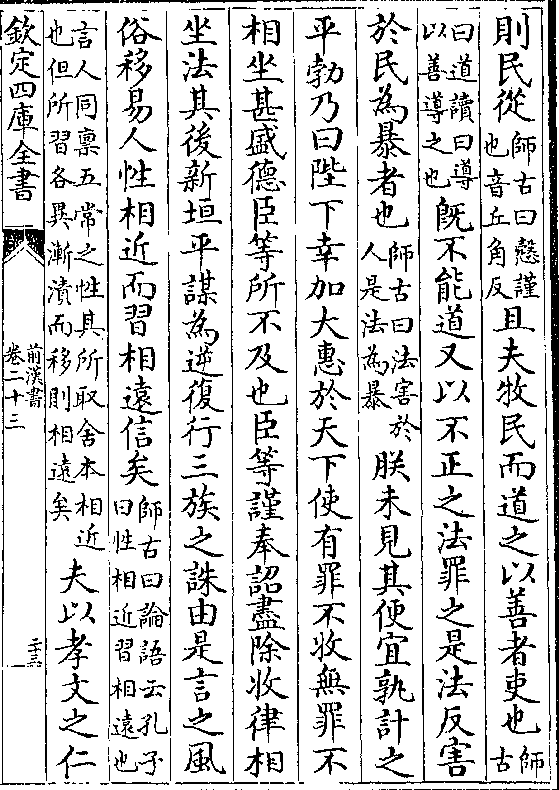 則民從師古曰慤謹也音丘角反且夫牧民而道之以善者吏也師古
曰道讀曰導以善導之也既不能道又以不正之法罪之是法反害
於民為暴者也師古曰法害於人是法為暴朕未見其便宜孰計之
平勃乃曰陛下幸加大惠於天下使有罪不收無罪不
相坐甚盛德臣等所不及也臣等謹奉詔盡除收律相
坐法其後新垣平謀為逆復行三族之誅由是言之風
俗移易人性相近而習相遠信矣師古曰論語云孔子曰性相近習相遠也
言人同稟五常之性其所取舍本相近也但所習各異漸漬而移則相遠矣夫以孝文之仁
欽定四庫全書
前漢書
卷二十三
二十三